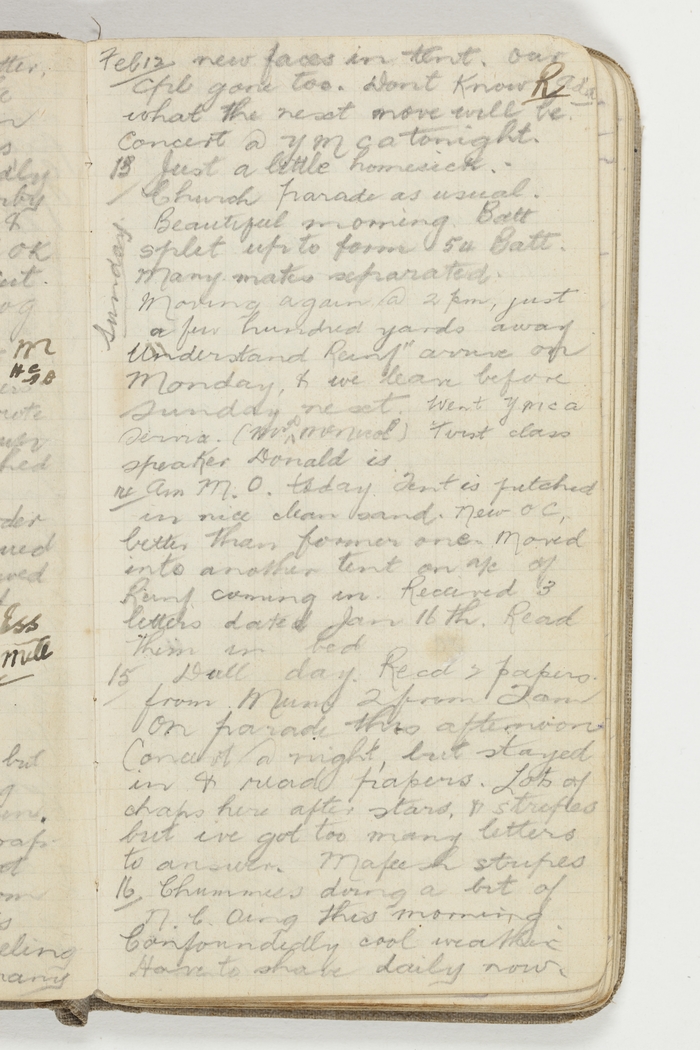 Feb 12 new faces in tent. Our
Cpl gone too. Dont Know
what the next move will be.
Concert @ YMCA tonight.
13 Just a little homesick. -
Church parade as usual.
Beautiful morning. Batt
split up to form 54 Batt.
Many mates separated.
Moving again @ 2 pm, just
a few hundred yards away
Understand Reinf" arrive on
Monday, & we leave before
Sunday next. Went Ymca
Sunday.
speaker Donald is
14 Am M. O. today. Tent is pitched
in nice clean sand. New OC,
better than former one. Moved
into another tent on a/c of
Reinf coming in. Received 3
letters dated Jan 16th. Read
them in bed
15 Dull day. Recd 2 papers.
from Mum 2 from
On parade this afternoon
Concert @ night, but stayed
in & read papers. Lots of
chaps here after stars, & stripes
but ive got too many letters
to answer. Mafeesh stripes
16 Chummies doing a bit of
N. C. Oing this morning
Confoundedly cool weather
Have to shave daily now.
OK
M
but